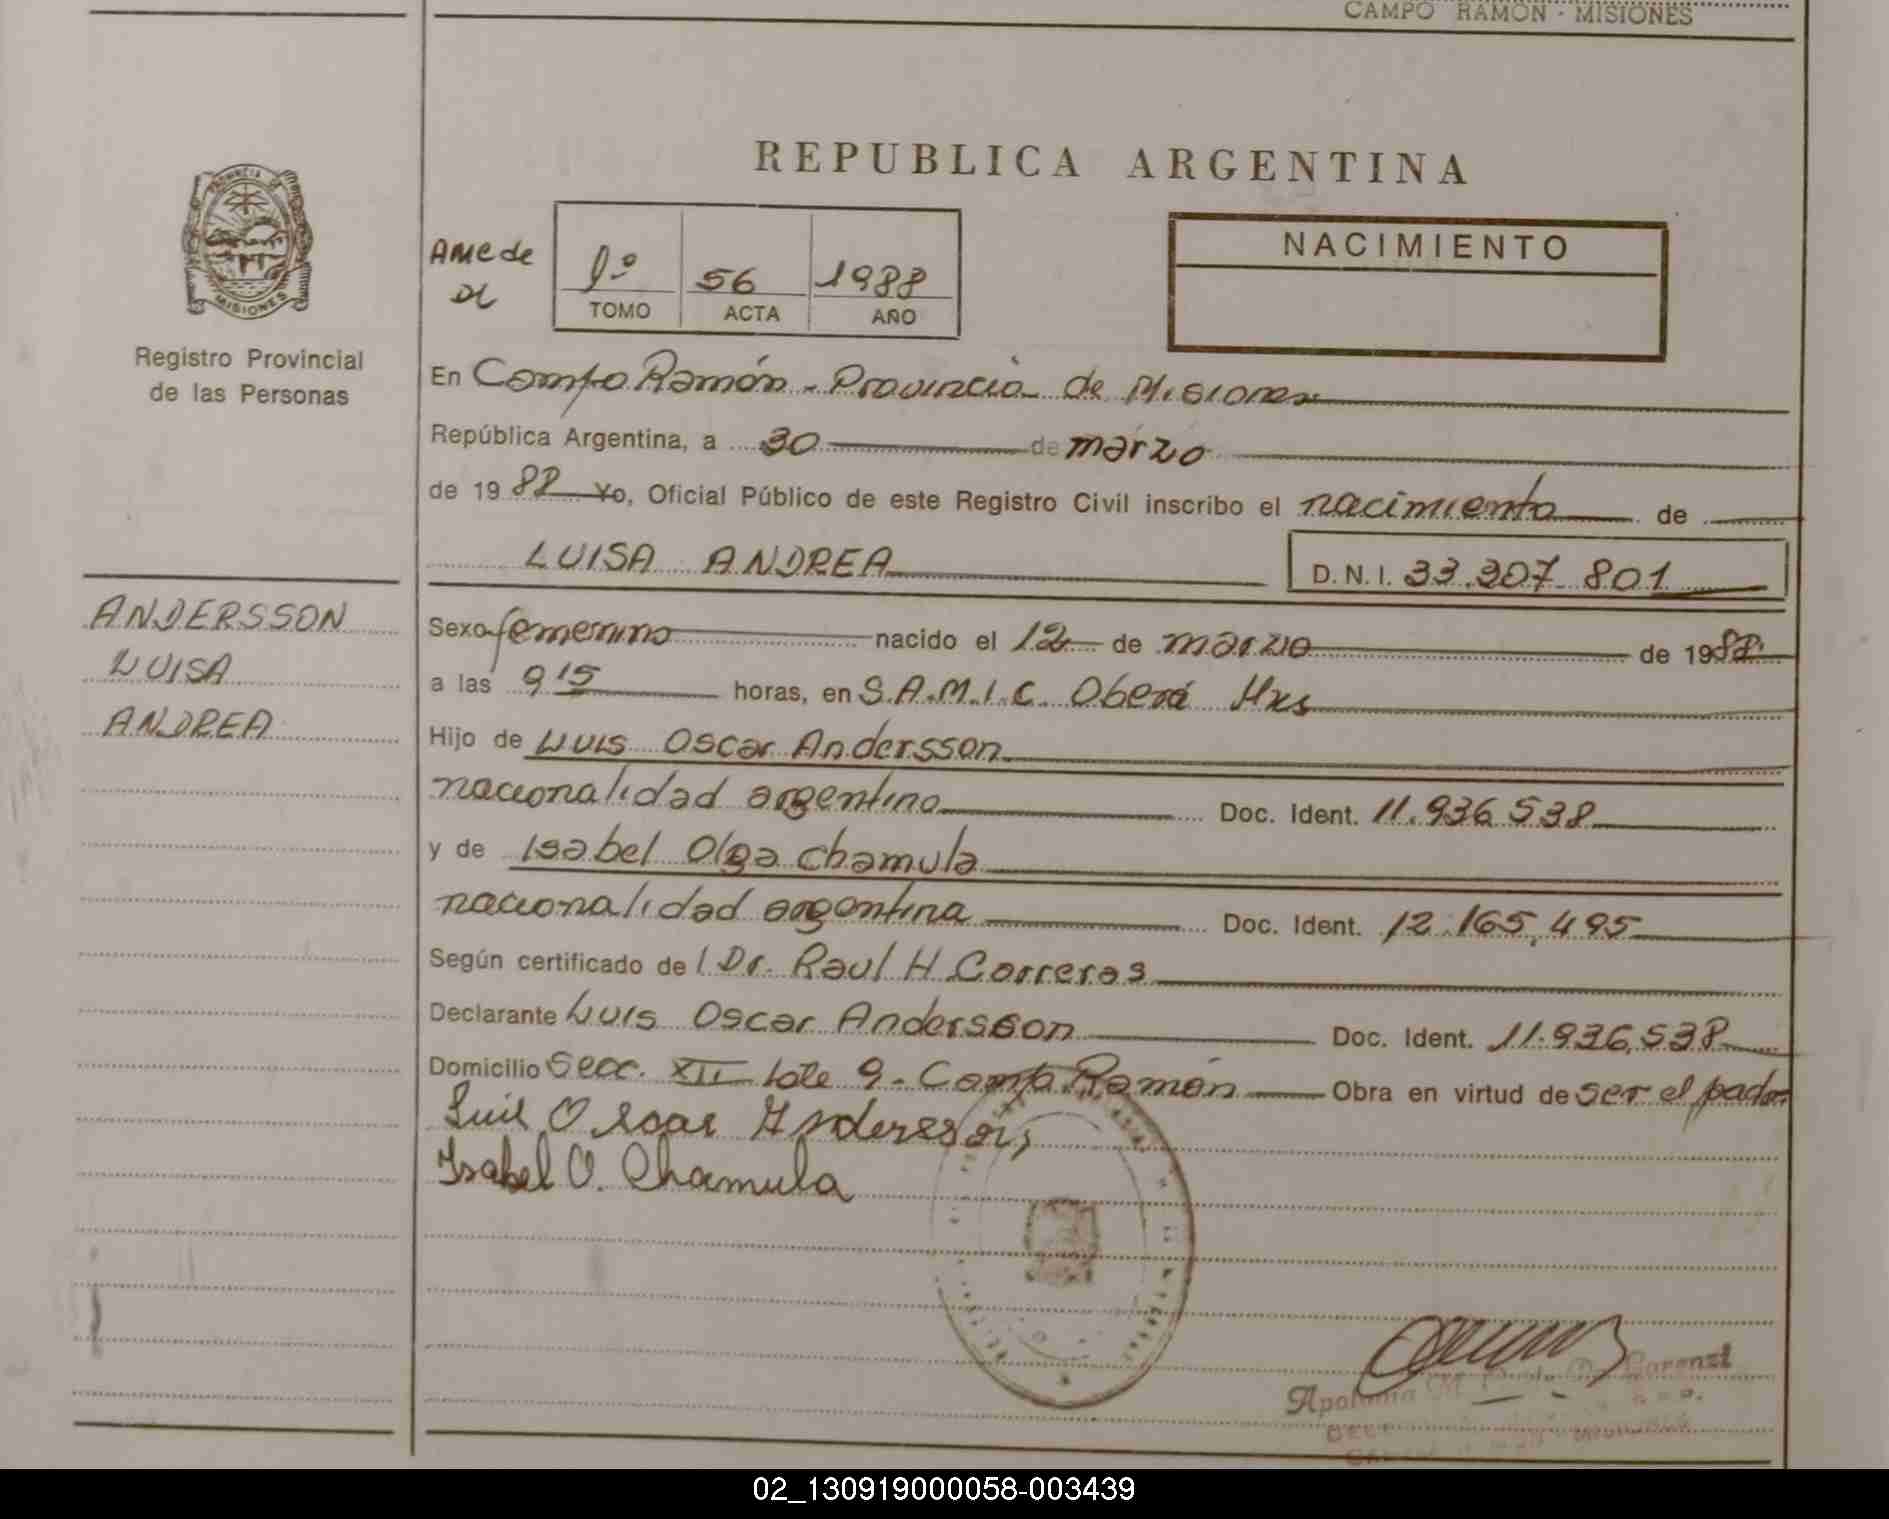 CAMPO RAMON - MISIONES
REPUBLICA ARGENTINA
NACIMIENTO
1º 56 1988
TOMO ACTA AÑO
PROVINCIA DE
MISIONES
Registro Provincial
de las Personas
ANDERSSON
LUISA
ANDREA
En Campo Ramón - Provincia de Misiones
República Argentina, a 30 de marzo
de 1988 Yo, Oficial Público de este Registro Civil inscribo el nacimiento de
LUISA ANDREA D.N.I. 33.207.801
Sexo femenino nacido el 12 de marzo de 1988
a las 9 15 horas, en S.A.M.I.C. Oberá Mns
Hijo de Luis Oscar Andersson
nacionalidad argentino Doc. Ident. 11.936.538
y de Isabel Olga Chamula
nacionalidad argentina Doc. Ident. 12.165.495
Según certificado de l Dr. Raul H Correras
Declarante Luis Oscar Andersson Doc. Ident. 11.936.538
Domicilio Secc. XII Lote 9 - Campo Ramón Obra en virtud de ser el padre
Luis Oscar Andersson
Isabel O. Chamula
Apolonia M
02_130919000058-003439